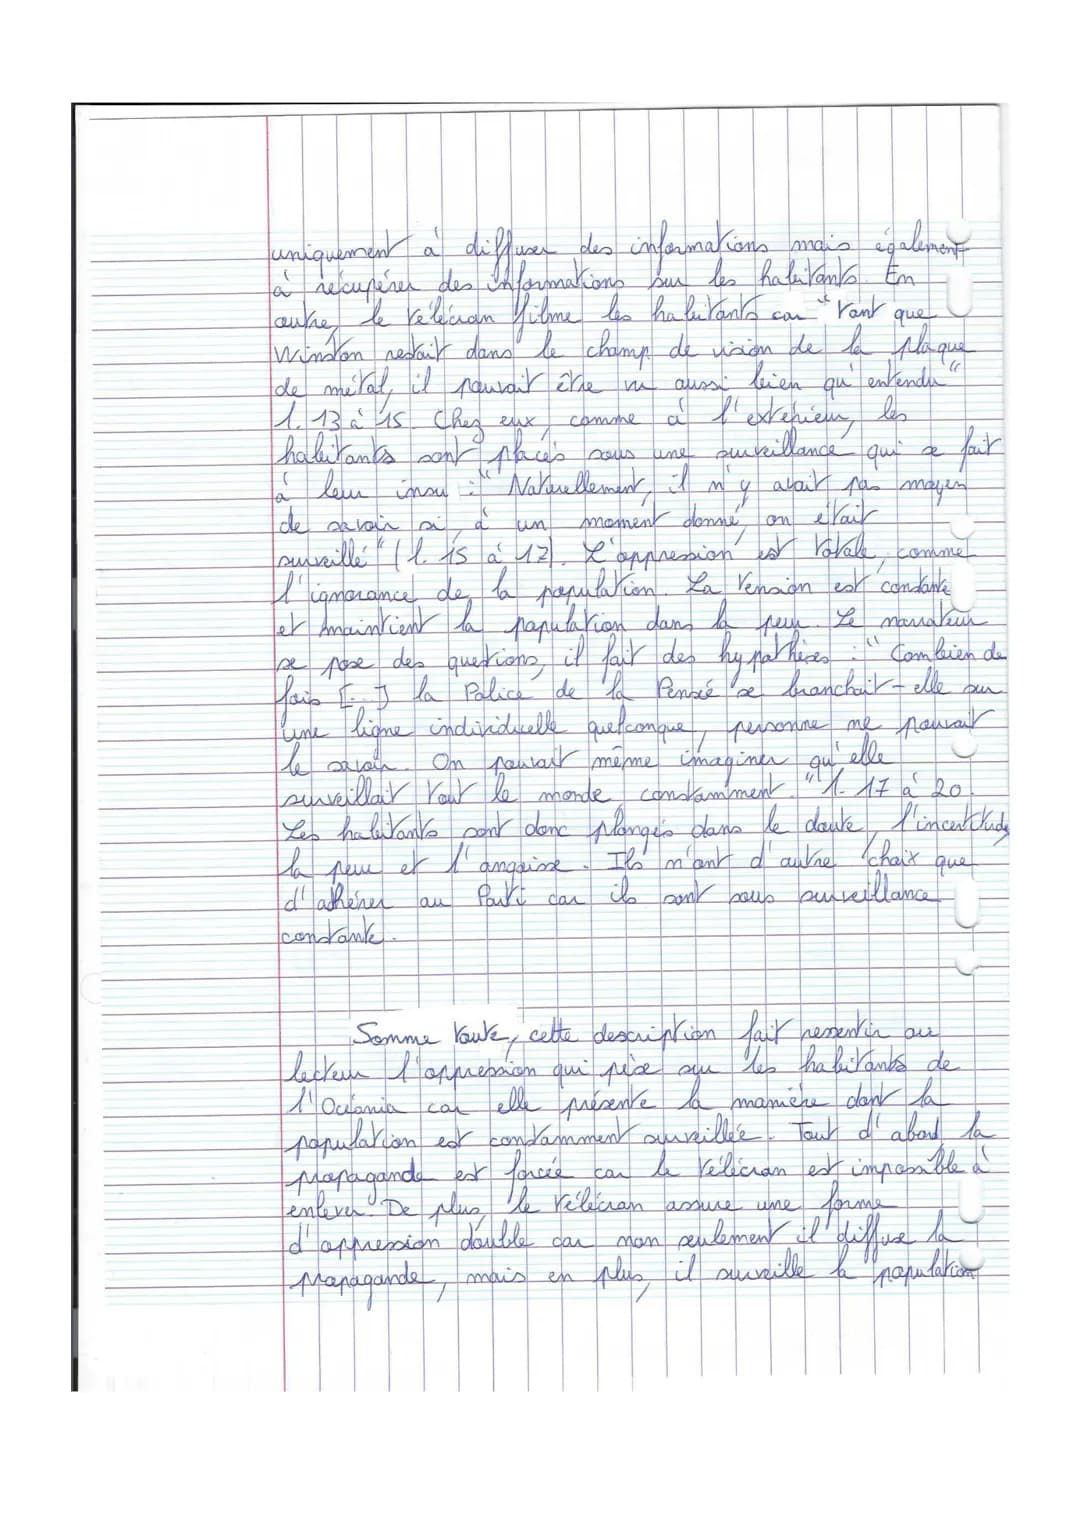 uniquement à diffuser des informations mais également
à récupérer des informations sur les habitants. En
outre, le télécran filme les habitants car "tant que
Winston restait dans le champ de vision de la plaque
de métal, il pouvait être vu aussi bien qu'entendu"
l. 13 à 15. Chez eux, comme à l'extérieur, les
habitants sont placés sous une surveillance qui se fait
à leur insu : "Naturellement, il n'y avait pas moyen
de savoir si, à un moment donné, on était
surveillé" (l. 15 à 17). L'oppression est totale, comme
l'ignorance de la population. La tension est constante
et maintient la population dans la peur. Le narrateur
se pose des questions, il fait des hypothèses : "Combien de
fois [...] la Police de la Pensée se branchait-elle sur
une ligne individuelle quelconque, personne ne pouvait
le savoir. On pouvait même imaginer qu'elle
surveillait tout le monde constamment." l. 17 à 20.
Les habitants sont donc plongés dans le doute, l'incertitude,
la peur et l'angoisse. Ils n'ont d'autre choix que
d'adhérer au Parti car ils sont sous surveillance
constante.
Somme toute, cette description fait ressentir au
lecteur l'oppression qui pèse sur les habitants de
l'Océania car elle présente la manière dont la
population est constamment surveillée. Tout d'abord, la
propagande est forcée car le télécran est impossible à
enlever. De plus, le télécran assure une forme
d'oppression double car non seulement il diffuse la
propagande, mais en plus, il surveille la population